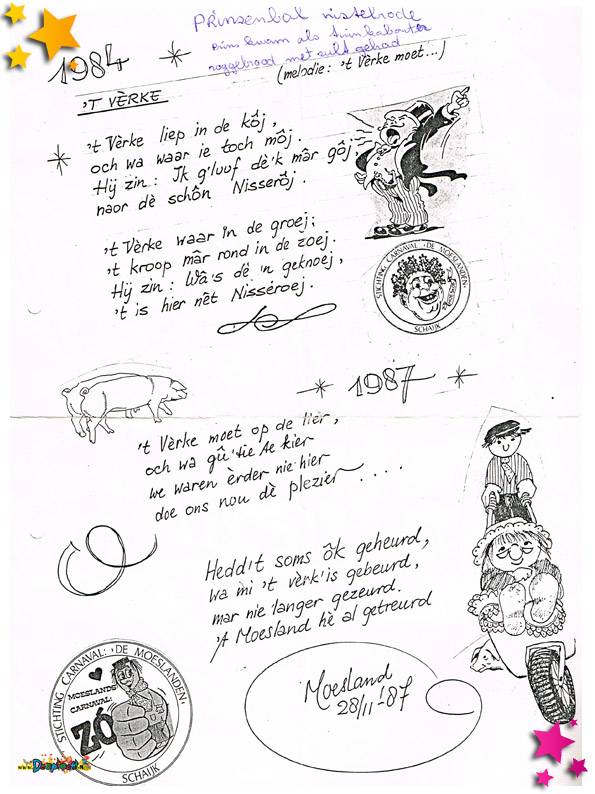 Prinsenbal nistelrode
prins kwam als trimkabouter
roggebrood met zult gehad
1984
(melodie: 't Vèrke moet...)
'T VÈRKE
't Vèrke liep in de kôj,
och wa waar ie toch môj.
Hij zin: Ik g'luuf dê'k mâr gôj
naor dè schôn Nisserôj.
't Vèrke waar in de groej;
't kroop mâr rond in de zoej.
Hij zin: Wâ's dê 'n geknoej,
't is hier nêt Nisseroej.
STICHTING CARNAVAL 'DE MOESLANDEN'
SCHAIJK
1987
't Vèrke moet op de lier,
och wa gû'tie te kier
we waren èrder nie hier
doe ons nou dè plezier....
Hedd't soms ôk geheurd,
wa mi 't vèrk is gebeurd,
mar nie langer gezeurd.
't Moesland hè al getreurd
Moesland
28/11-'87
STICHTING CARNAVAL: 'DE MOESLANDEN'
MOESLANDS
CARNAVAL:
ZÓ
SCHAIJK